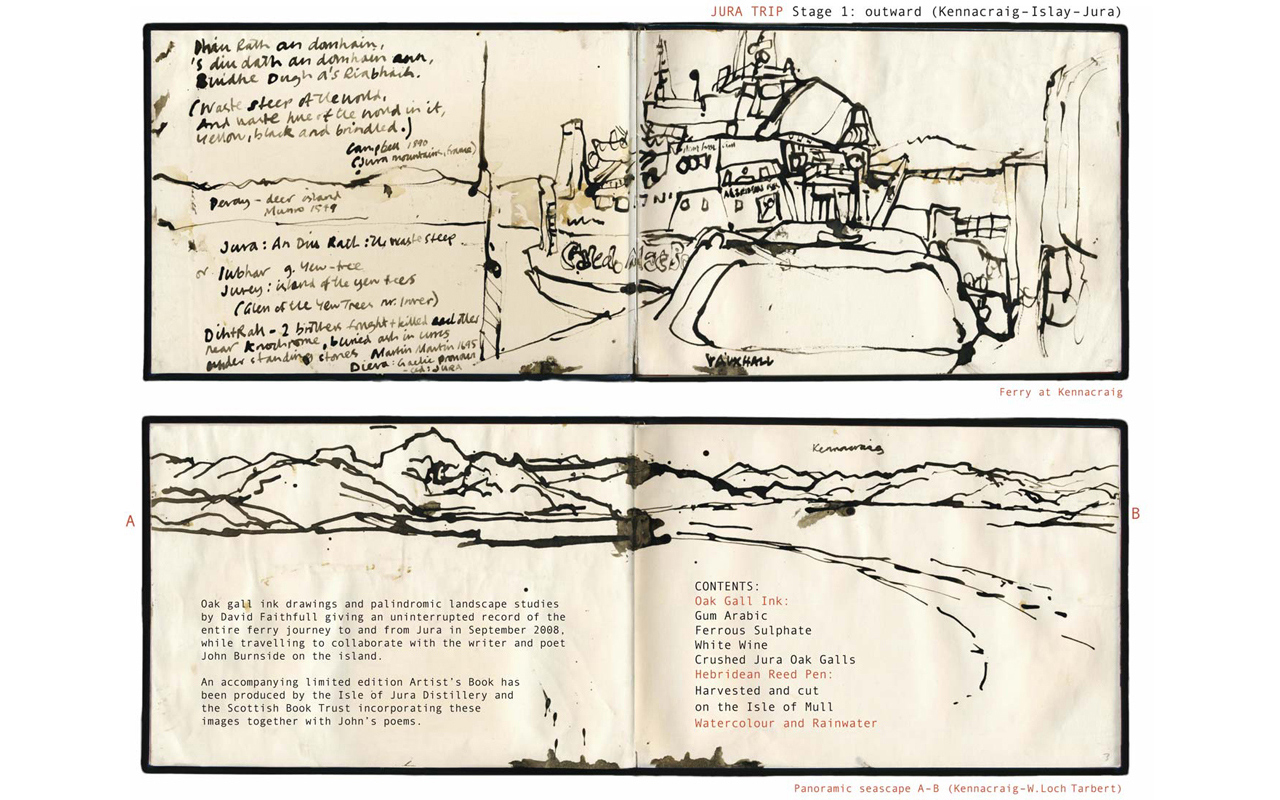 JURA TRIP Stage 1: outward (Kennacraig–Islay–Jura)
Dhiu Rath an domhain,
's diu dath an domhain ann,
Buidhe Dugh a's Riabhach.
(Waste steep of the world,
And waste hue of the world in it,
Yellow, black and brindled.)
Campbell
(Jura mountain, )
Deray – deer island
Munro 1549
Jura: An Diu Rath: the waste steep
or Iubhar g. Yew-tree
Jurey: island of the yew trees
(Glen of the Yew Trees nr. )
2 brothers fought + killed each other
near Knochrome, buried ash in urns
under standing stones Martin Martin 1695
: Gaelic
JURA
VAUXHALL
Ferry at Kennacraig
Kennacraig
A
B
Oak gall ink drawings and palindromic landscape studies
by David Faithfull giving an uninterrupted record of the
entire ferry journey to and from Jura in September 2008,
while travelling to collaborate with the writer and poet
John Burnside on the island.
An accompanying limited edition Artist's Book has
been produced by the Isle of Jura Distillery and
the Scottish Book Trust incorporating these
images together with John's poems.
CONTENTS:
Oak Gall Ink:
Gum Arabic
Ferrous Sulphate
White Wine
Crushed Jura Oak Galls
Hebridean Reed Pen:
Harvested and cut
on the Isle of Mull
Watercolour and Rainwater
Panoramic seascape A–B (Kennacraig–W.Loch Tarbert)